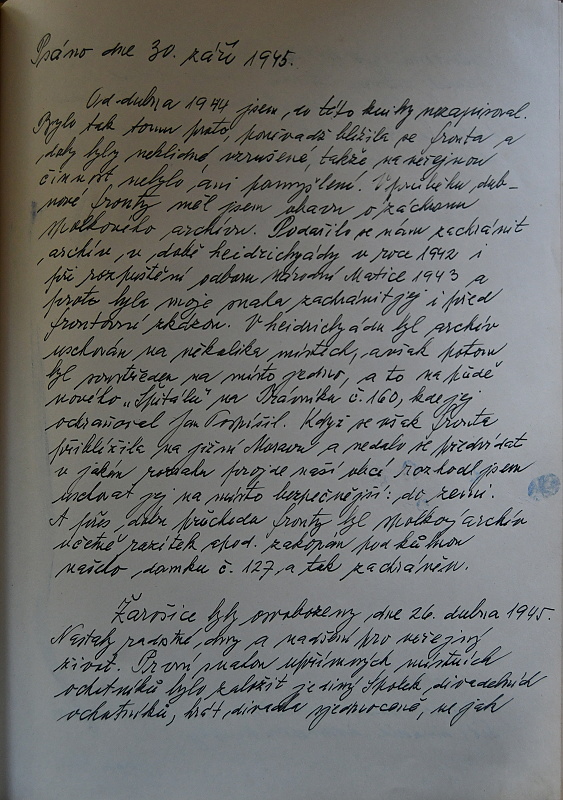 Psáno dne 30. září 1945.
Od dubna 1944 jsem do této knihy nezapisoval.
Bylo tak tomu proto, poněvadž blížila se fronta a
doby byly neklidné, vzrušené, takže na veřejnou
činnost nebylo ani pomyšlení. V průběhu dub-
nové fronty měl jsem obavu o záchranu
spolkového archivu. Podařilo se nám zachránit
archiv, v době heidrichyády v roce 1942 i
při rozpuštění odboru Národní Matice 1943 a
proto byla moje snaha zachránit jej i před
frontovní zkázou. V heidrichyádu byl archiv
uschován na několika místech, avšak potom
byl soustředěn na místo jedno, a to na půdě
nového „Špitálu" na Trávníku č. 160, kde jej
odraňoval Jan Pospíšil. Když se však fronta
přiblížila na jižní Moravu a nedalo se předvídat
v jakém rozsahu projde naší obcí, rozhodl jsem
uschovat jej na místo bezpečnější: do země.
A přes dobu průchodu fronty byl spolkový archiv
včetně razítek apod. zakopán pod kůlnou
našeho domku č. 127, a tak zachráněn.
Žarošice byly osvobozeny dne 26. dubna 1945.
Nastaly radostné dny a nadšení pro veřejný
život. První snahou upřímných místních
ochotníků bylo založit jediný spolek divadelních
ochotníků, hrát divadla sjednoceně, ne jak